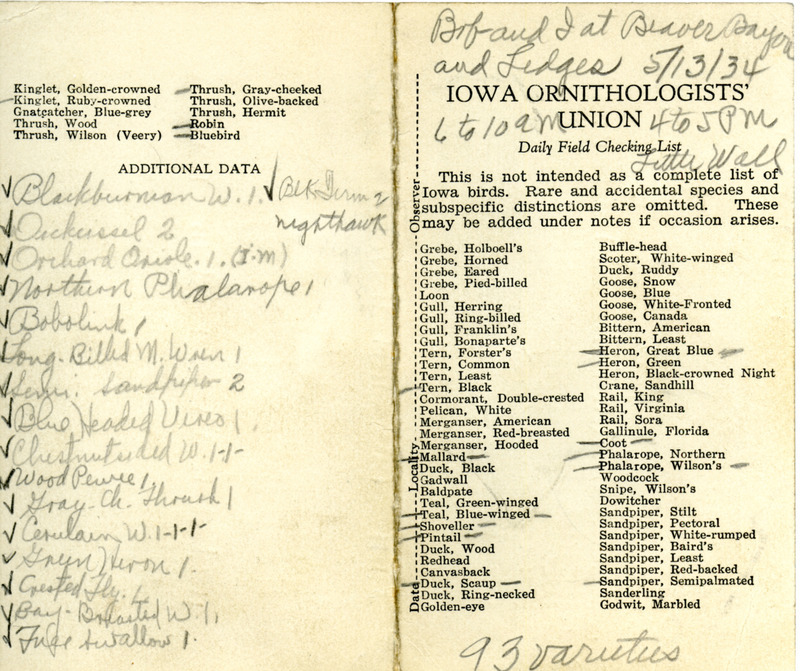 Kinglet, Golden-crowned
Kinglet, Ruby-crowned
Gnatcatcher, Blue-grey
Thrush, Wood
Thrush, Wilson (Veery)
Thrush, Gray-cheeked
Thrush, Olive-backed
Thrush, Hermit
Robin
Bluebird
ADDITIONAL DATA
Blackburnian W. 1.
Blk Tern 2
nighthawk
Dickcissel 2
Orchard Oriole. 1. (I.M)
Northern Phalarope 1
Bobolink 1
Long-Billed M. Wren 1
Semi. Sandpiper 2
Blue Headed Vireo 1.
Chestnut sided W. 1-1-
Wood Pewee 1
Gray-Ch. Thrush 1
Cerulean W. 1-1-1-
Green Heron 1.
Crested Fly. 1
Bay-Breasted W. 1,
Swallow 1.
Bob and I at Beaver Bayou
and Ledges 5/13/34
IOWA ORNITHOLOGISTS'
UNION
6 to 10 AM 4 to 5 PM
Daily Field Checking List
Wall
This is not intended as a complete list of
Iowa birds. Rare and accidental species and
subspecific distinctions are omitted. These
may be added under notes if occasion arises.
Observer
Locality
Date
Grebe, Holboell's
Grebe, Horned
Grebe, Eared
Grebe, Pied-billed
Loon
Gull, Herring
Gull, Ring-billed
Gull, Franklin's
Gull, Bonaparte's
Tern, Forster's
Tern, Common
Tern, Least
Tern, Black
Cormorant, Double-crested
Pelican, White
Merganser, American
Merganser, Red-breasted
Merganser, Hooded
Mallard
Duck, Black
Gadwall
Baldpate
Teal, Green-winged
Teal, Blue-winged
Shoveller
Pintail
Duck, Wood
Redhead
Canvasback
Duck, Scaup
Duck, Ring-necked
Golden-eye
Buffle-head
Scoter, White-winged
Duck, Ruddy
Goose, Snow
Goose, Blue
Goose, White-Fronted
Goose, Canada
Bittern, American
Bittern, Least
Heron, Great Blue
Heron, Green
Heron, Black-crowned Night
Crane, Sandhill
Rail, King
Rail, Virginia
Rail, Sora
Gallinule, Florida
Coot
Phalarope, Northern
Phalarope, Wilson's
Woodcock
Snipe, Wilson's
Dowitcher
Sandpiper, Stilt
Sandpiper, Pectoral
Sandpiper, White-rumped
Sandpiper, Baird's
Sandpiper, Least
Sandpiper, Red-backed
Sandpiper, Semipalmated
Sanderling
Godwit, Marbled
93 varieties